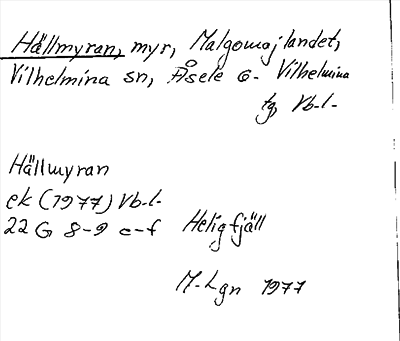 Hällmyran, myr, Malgomajlandet,
Vilhelmina sn, Åsele o- Vilhelmina
tg, Vb-l-
Hällmyran
ek (1977) Vb-l-
22 G 8-9 e-f Heligfjäll
M-Lgn 1977